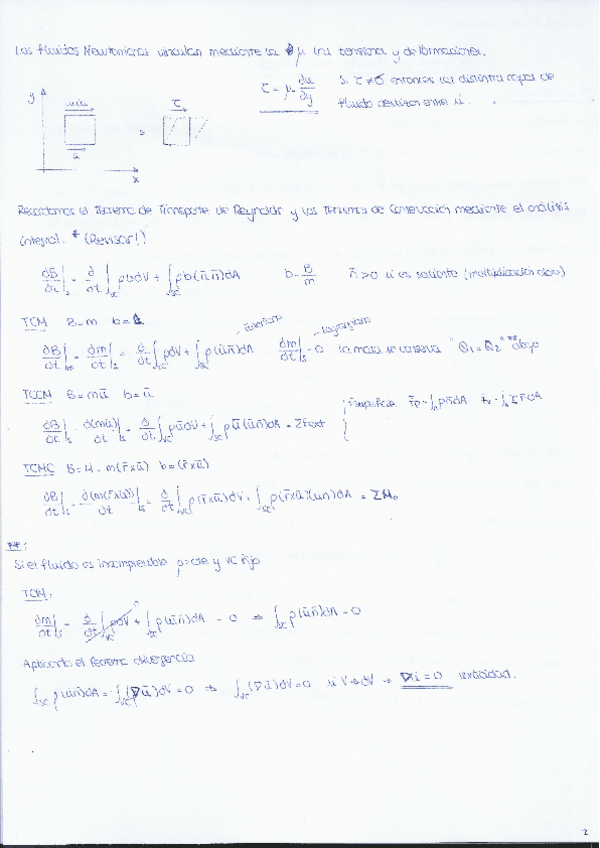 Los fluidos Newtonianos vinculan mediante la μ las tensiones y deformaciones.
τ = μ ∂u/∂y Si τ ≠ 0 entonces las distintas capas de
fluido deslizan entre sí.
y
τ
=
x
Recordamos el Teorema de Transporte de Reynolds y los Teoremas de Conservación mediante el análisis
integral. * (Repasar!)
dB/dt|s = ∂/∂t ∫VC ρb dV + ∫SC ρb(ū·n̄)dA b = B/m n̄>0 si es saliente
TCM B=m
dB/dt|s = dm/dt|s = ∂/∂t ∫VC ρdV + ∫SC ρ(ūn̄)dA dm/dt|s = 0 la masa se conserva "Q₁=Q₂" **
TCCM B=mū b=ū
dB/dt|s = d(mū)/dt|s = ∂/∂t ∫VC ρūdV + ∫SC ρū(ūn̄)dA = ΣFext
TCMC B=H=m(r̄xū) b=(r̄xū)
dB/dt|s = d(m(r̄xū))/dt|s = ∂/∂t ∫VC ρ(r̄xū)dV + ∫SC ρ(r̄xū)(ūn̄)dA = ΣM₀
**:
Si el fluido es incompresible ρ=cte y VC fijo
TCM:
dm/dt|s = ∂/∂t ∫VC ρdV + ∫SC ρ(ūn̄)dA = 0 ⇒ ∫SC ρ(ūn̄)dA = 0
Aplicando el Teorema divergencia
∫SC ρ(ūn̄)dA = ∫VC (∇ū)dV = 0 ⇒ ∫VC (∇ū)dV = 0 si V→dV → ∇ū = 0
2